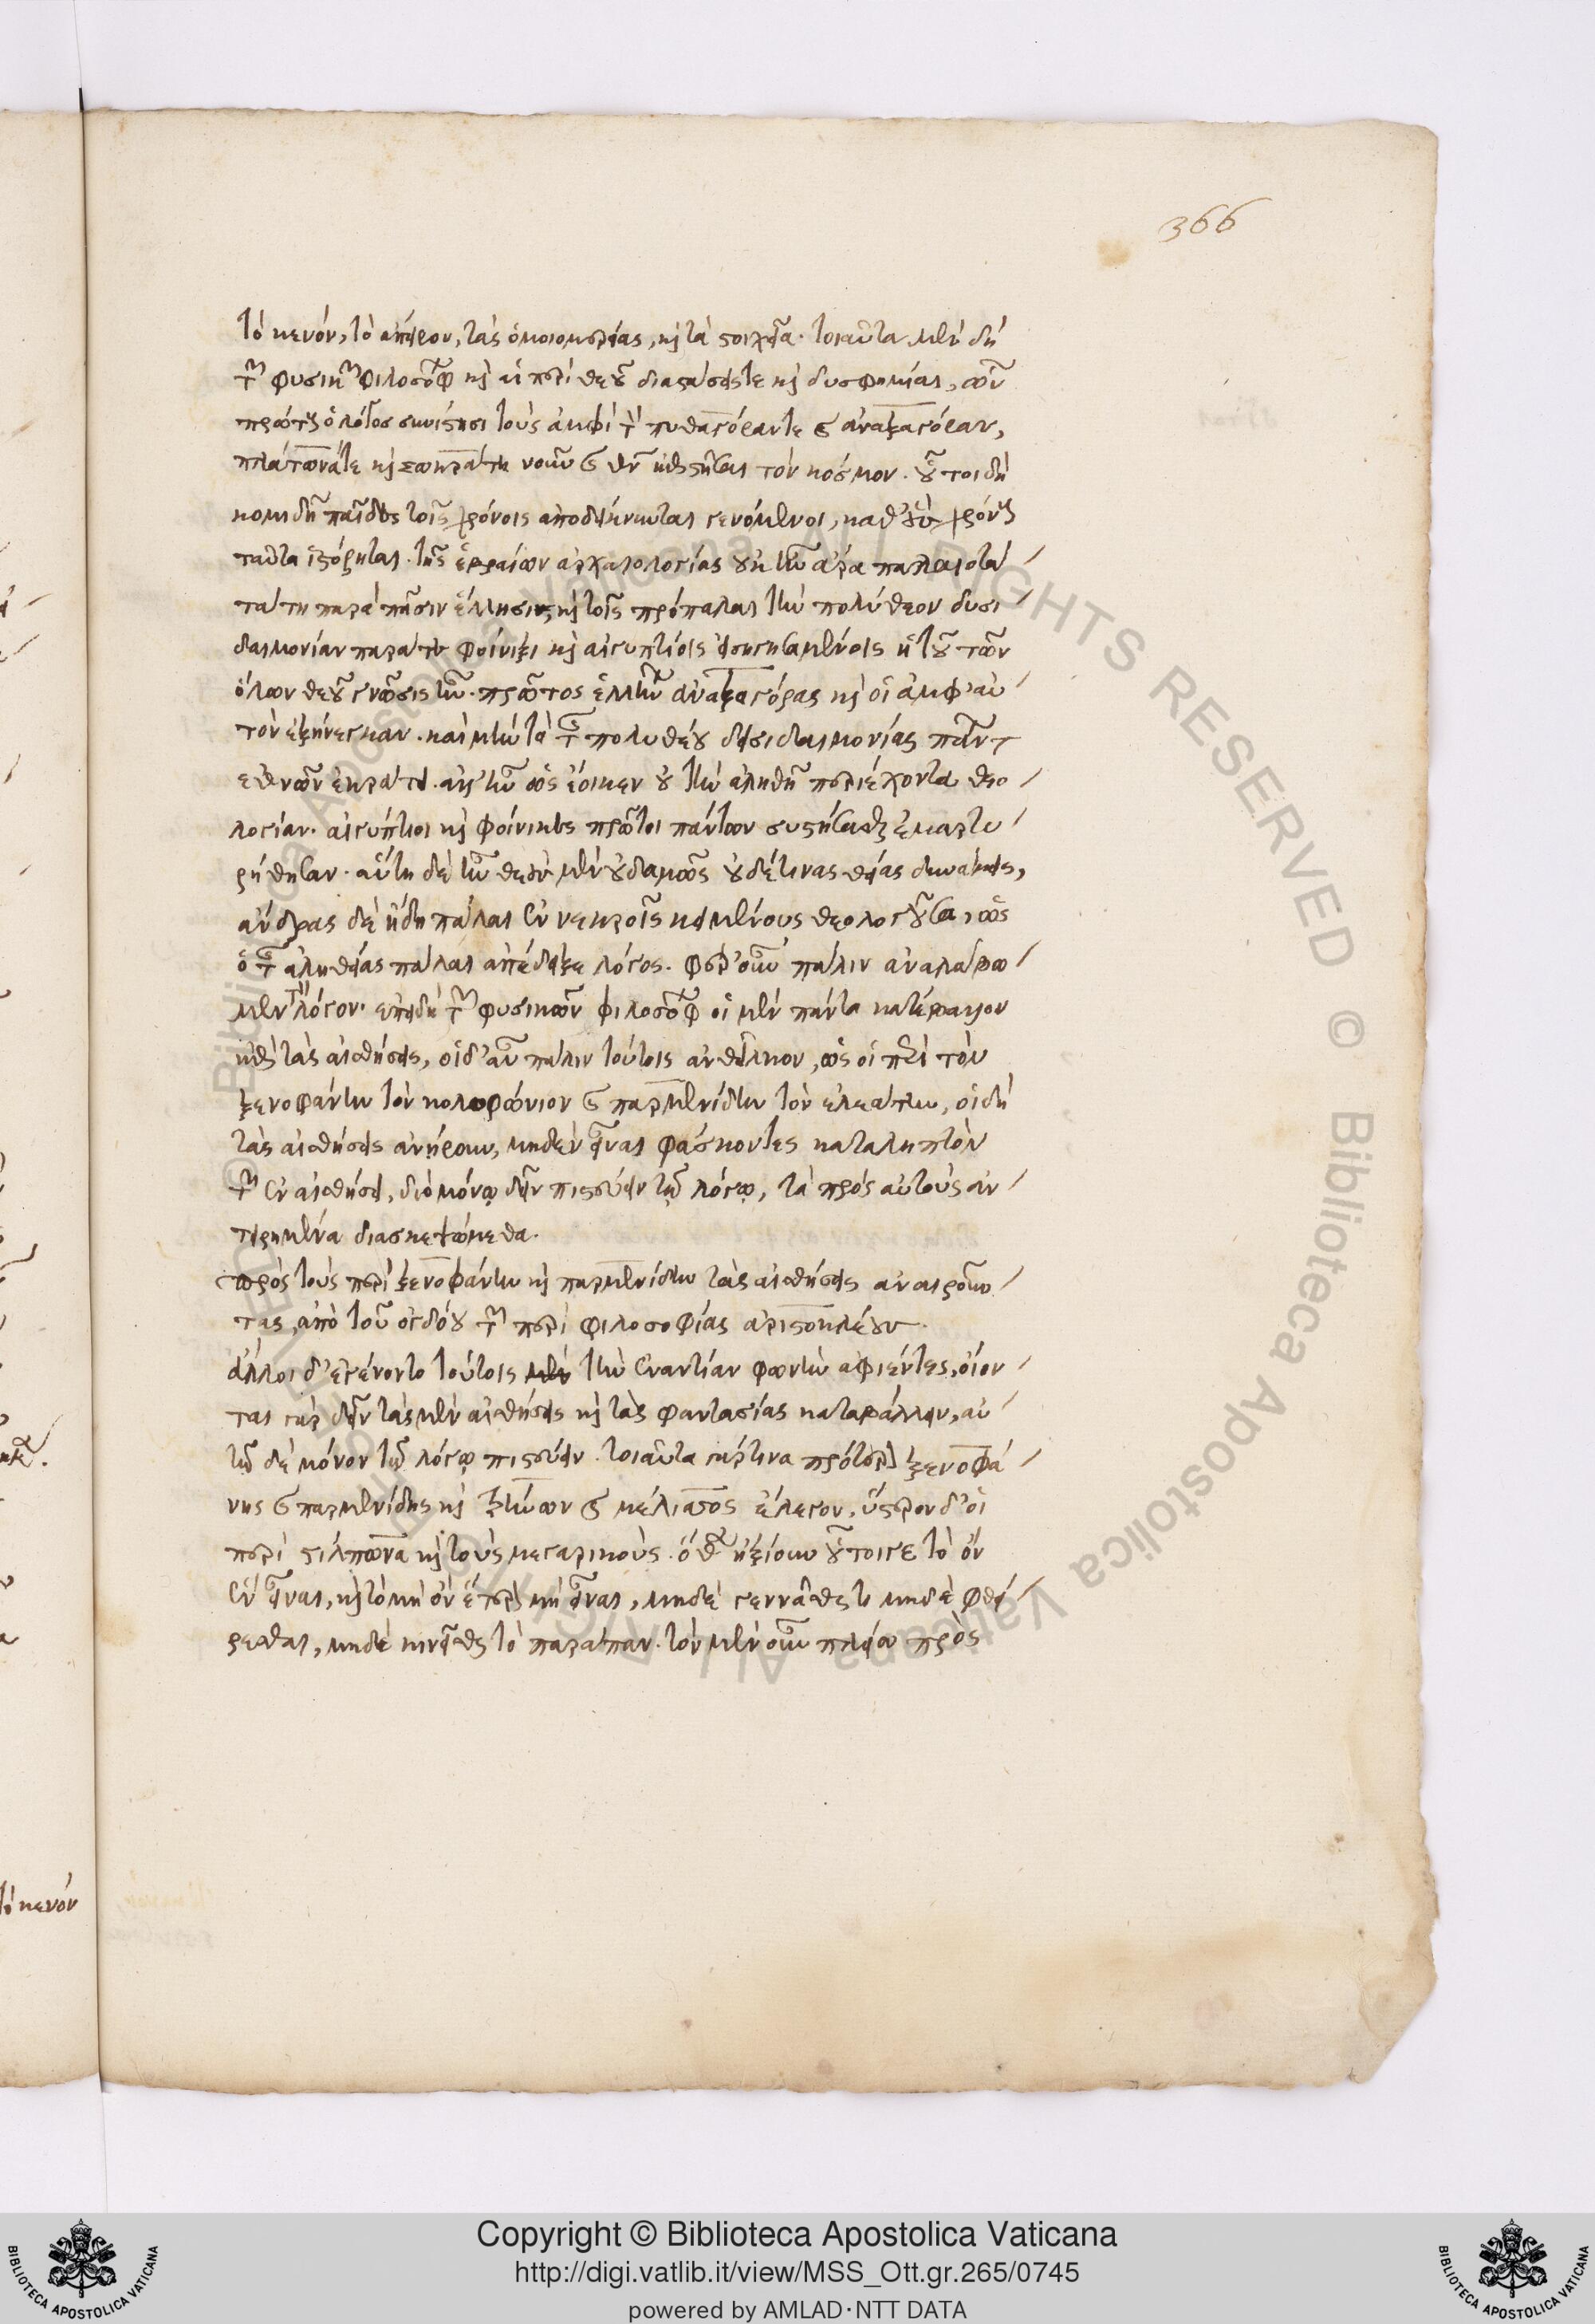 366
τὸ κενόν, τὸ ἄπειρον, τὰς ὁμοιομερείας, καὶ τὰ στοιχεῖα. τοιαῦτα μὲν δὴ
τῶν φυσικῶν φιλοσόφων καὶ αἱ περὶ θεοῦ διαστάσεις τε καὶ δυσφημίαι, ὧν
πρώτους ὁ λόγος συνίστησι τοὺς ἀμφὶ τὸν πυθαγόραν τε καὶ ἀναξαγόραν,
πλάτωνά τε καὶ σωκράτη νοῦν καὶ θεὸν ἐπιστῆσαι τὸν κόσμον. οὗτοι δὴ
κομιδῇ παῖδες τοῖς χρόνοις ἀποδείκνυνται γενόμενοι, καθ' οὓς χρόνους
ταῦτα ἱστόρηται. τῆς ἑβραίων ἀρχαιολογίας οὐκ ἦν ἄρα παλαιοτά
τατη παρὰ πᾶσιν ἕλλησιν, καὶ τοῖς πρόπαλαι τὴν πολύθεον δυσι
δαιμονίαν παρά τε φοίνιξι καὶ αἰγυπτίοις εἰσηγησαμένοις ἡ τοῦ τῶν
ὅλων θεοῦ γνῶσις ἦν. πρῶτος ἑλλήνων ἀναξαγόρας καὶ οἱ ἀμφ' αὐ
τὸν ἐξήνεγκαν. καὶ μὴν τὰ τῆς πολυθέου δεισιδαιμονίας πάντων
ἐθνῶν ἐκράτει. αὐτὴν ὡς ἔοικεν οὐ τὴν ἀληθῆ περιέχοντα θεο
λογίαν. αἰγύπτιοι καὶ φοίνικες πρῶτοι πάντων συστήσασθαι ἐμαρτυ
ρήθησαν. αὕτη δὲ ἦν θεοὺς μὲν οὐδαμῶς οὐδέ τινας θείας δυνάμεις,
ἄνδρας δὲ ἤδη πάλαι ἐν νεκροῖς κειμένους θεολογοῦσα, ὡς
ὁ τῆς ἀληθείας πάλαι ἀπέδειξε λόγος. φέρ' οὖν πάλιν ἀναλάβω
μεν τὸν λόγον. ἐπειδὴ τῶν φυσικῶν φιλοσόφων οἱ μὲν πάντα κατέβαλλον
ἐπὶ τὰς αἰσθήσεις, οἱ δ' αὖ πάλιν τούτοις ἀνθεῖλκον, ὡς οἱ περὶ τὸν
ξενοφάνην τὸν κολοφώνιον καὶ παρμενίδην τὸν ἐλεάτην, οἱ δὴ
τὰς αἰσθήσεις ἀνῄρουν, μηδὲν εἶναι φάσκοντες καταληπτὸν
τῶν ἐν αἰσθήσει, διὸ μόνῳ δεῖν πιστεύειν τῷ λόγῳ, τὰ πρὸς αὐτοὺς ἀν
τειρημένα διασκεψώμεθα.
πρὸς τοὺς περὶ ξενοφάνην καὶ παρμενίδην τὰς αἰσθήσεις ἀναιροῦν
τας, ἀπὸ τοῦ ὀγδόου τῶν περὶ φιλοσοφίας ἀριστοκλέους.
ἄλλοι δ' ἐγένοντο τούτοις τὴν ἐναντίαν φωνὴν ἀφιέντες, οἴον
ται γὰρ δεῖν τὰς μὲν αἰσθήσεις καὶ τὰς φαντασίας καταβάλλειν, αὐ
τῷ δὲ μόνον τῷ λόγῳ πιστεύειν. τοιαῦτα γάρ τινα πρότερον ξενοφά
νης καὶ παρμενίδης καὶ ζήνων καὶ μέλισσος ἔλεγον, ὕστερον δ' οἱ
περὶ στίλπωνα καὶ τοὺς μεγαρικούς. ὅθεν ἠξίουν οὗτοί γε τὸ ὂν
ἓν εἶναι, καὶ τὸ μὴ ὂν ἕτερον μὴ εἶναι, μηδὲ γεννᾶσθαί τι μηδὲ φθεί
ρεσθαι, μηδὲ κινεῖσθαι τὸ παράπαν. τὸν μὲν οὖν πλείω πρὸς
τὸ κενόν
Copyright © Biblioteca Apostolica Vaticana
http://digi.vatlib.it/view/MSS_Ott.gr.265/0745
powered by AMLAD·NTT DATA